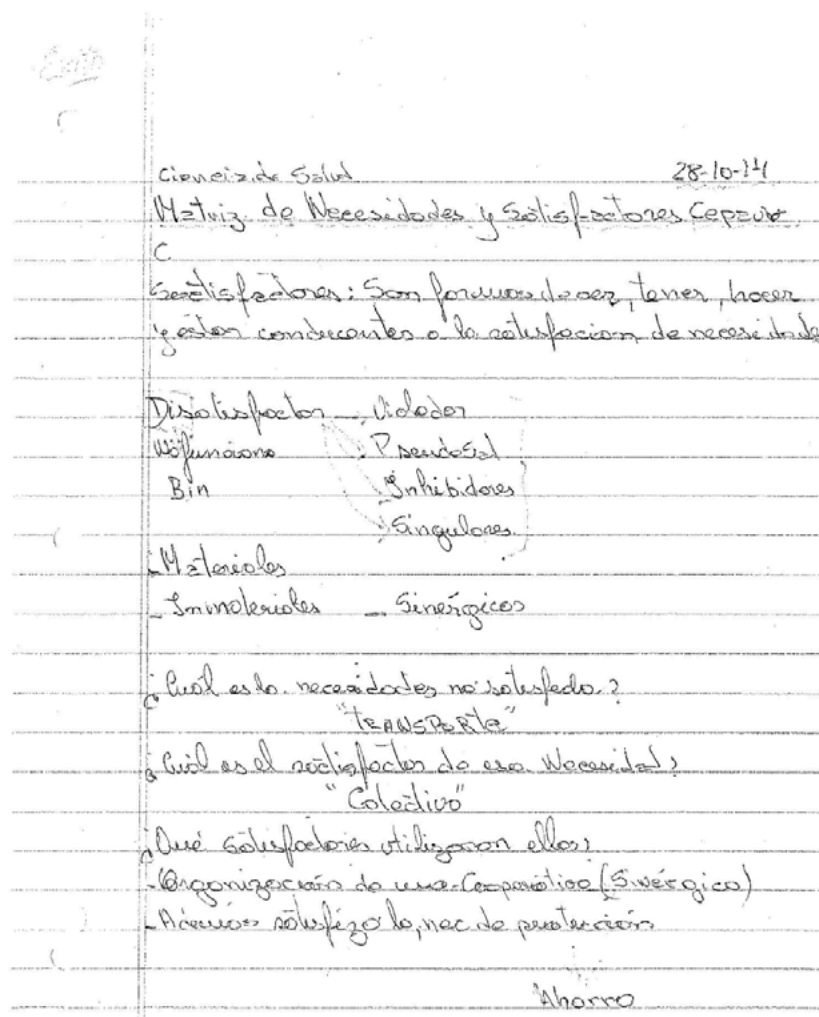 Éxito
Ciencia de Salud 28-10-14
Matriz de Necesidades y Satisfactores Cepaur
C
Satisfactores: Son formas de ser, tener, hacer
y estar conducentes a la satisfacion de necesidade
Disatisfactor - Violador
No funciona Pseudosat
Bin Inhibidores
Singulares
- Materiales
- Inmateriales - Sinérgicos
¿Cuál es la necesidades no satisfecha?
"TRANSPORTE"
¿Cuál es el satisfactor de esa Necesidad?
"Colectivo"
¿Qué satisfactores utilizaron ellos?
- Organización de una Cooperativa (Sinérgico)
- Además satisfizo la nec de protección
Ahorro